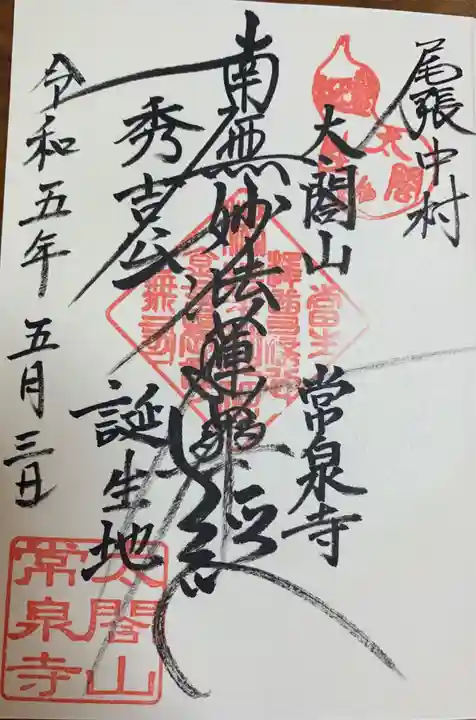 尾張中村
太閤山 常泉寺
南無妙法蓮華経
秀吉公 誕生地
令和五年 五月三日
太閤山
常泉寺